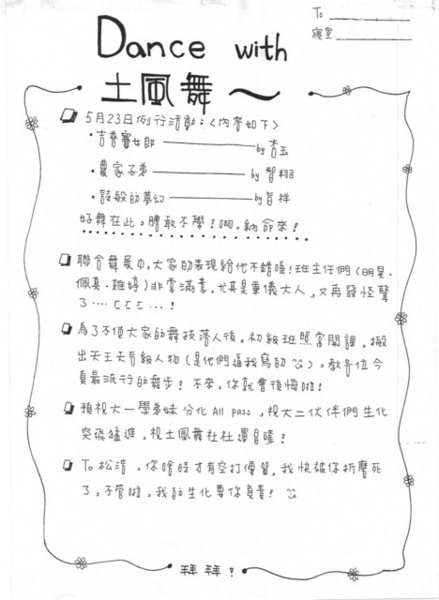 To
寢室
Dance with
土風舞～
5月23日例行活動：〈內容如下〉
・吉普賽女郎 by 杏玉
・農家子弟 by 智翔
・詩般的夢幻 by 旨祥
好舞在此，膽敢不學！啊，納命來！
聯合舞展中，大家的表現給他不錯喔！班主任們（明昊、
佩真、雅婷）非常滿意，尤其是秉儀大人，又再發怪聲
了‥‥ㄈㄈㄈ‥‥！
為了不使大家的舞技落人後，初級班照常開課，搬
出天王天后級人物（是他們逼我寫的），教各位今
夏最流行的舞步！不來，你就會後悔啦！
預祝大一學弟妹分化All pass，祝大二伙伴們生化
突飛猛進，祝土風舞社社運昌隆！
To 松浩，你啥時才有空打優蓄，我快被你折磨死
了，不管啦，我的生化要你負責！
拜拜？